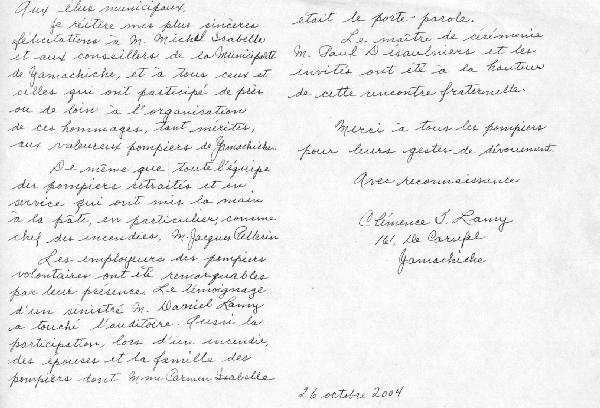 Aux élus municipaux.
Je réitère mes plus sincères
félicitations à M. Michel Isabelle
et aux conseillers de la Municipalité
de Yamachiche, et à tous ceux et
celles qui ont participé de près
ou de loin à l'organisation
de ces hommages, tant mérités,
aux valeureux pompiers de Yamachiche.
De même que toute l'équipe
des pompiers retraités et en
service qui ont mis la main
à la pâte, en particulier, comme
chef des incendies, M. Jacques Pellerin
Les employeurs des pompiers
volontaires ont été remarquables
par leur présence. Le témoignage
d'un sinistré M. Daniel Lamy
a touché l'auditoire. Aussi la
participation, lors d'un incendie,
des épouses et la famille des
pompiers dont Mme Carmen Isabelle
était le porte-parole.
Le maître de cérémonie
M. Paul Désaulniers et les
invités ont été à la hauteur
de cette rencontre fraternelle.
Merci à tous les pompiers
pour leurs gestes de dévouement.
Avec reconnaissance
Clémence T. Lamy
161, De Carufel
Yamachiche
26 octobre 2004